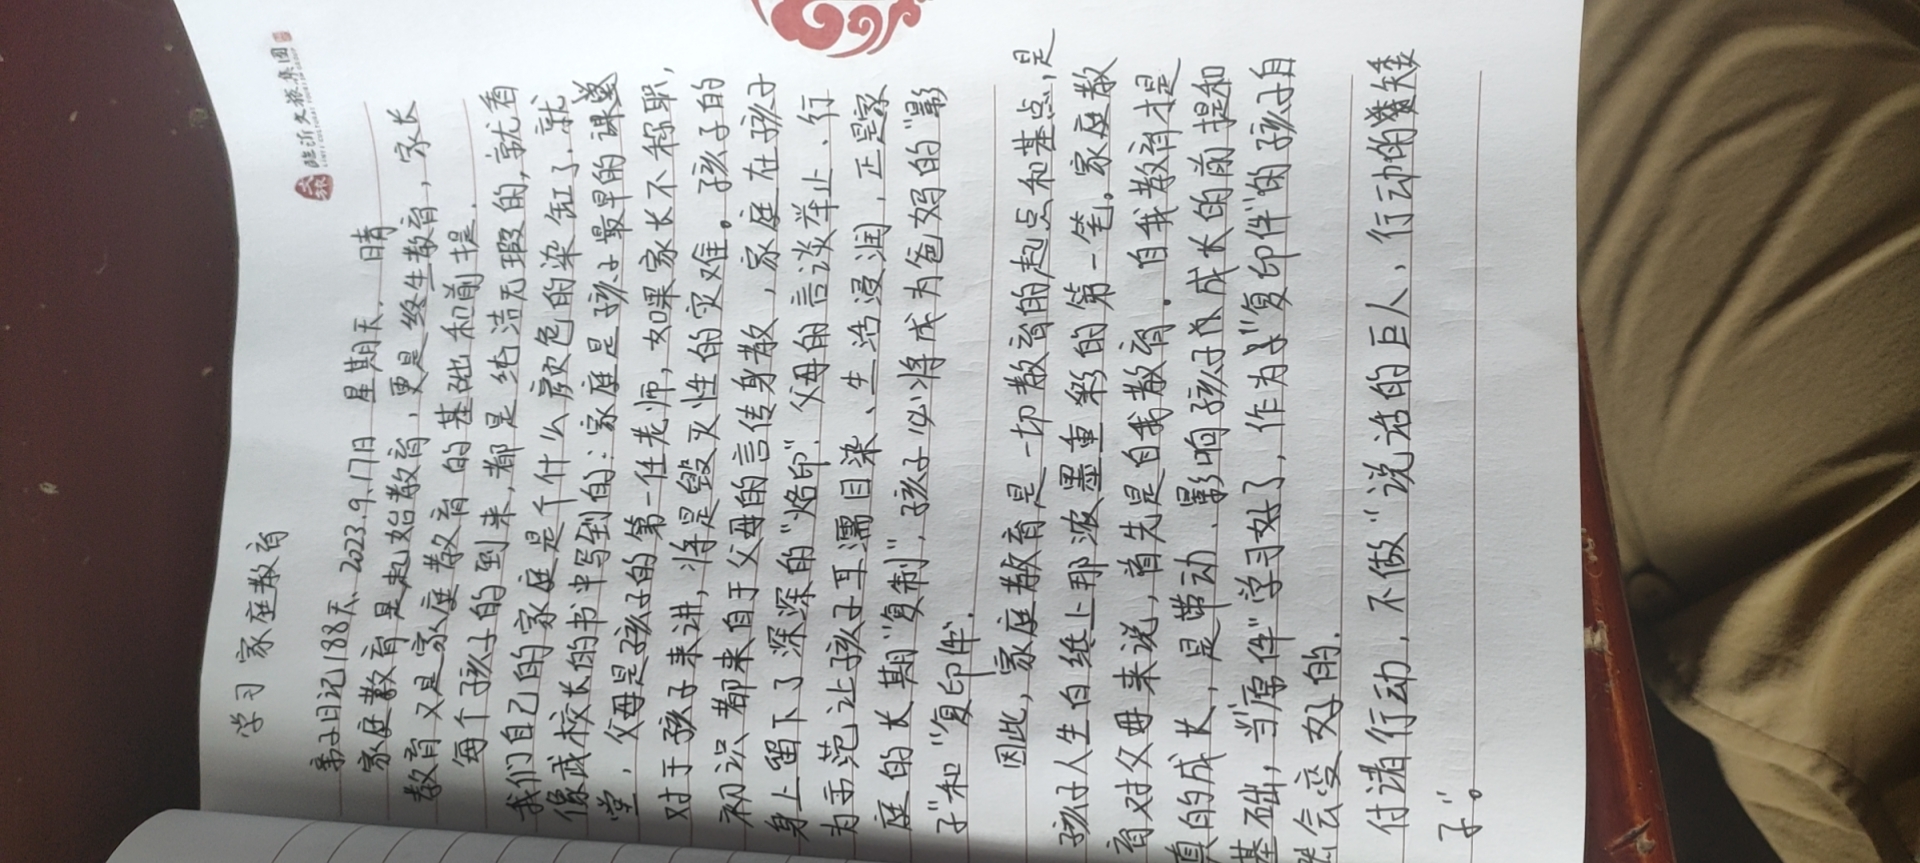 临沂文旅集团
文旅
学习家庭教育
亲子日记188天、2023.9.17日 星期天.晴
家庭教育是起始教育,更是终生教育,家长
教育又是家庭教育的基础和前提.
每个孩子的到来,都是纯洁无瑕的,就看
我们自己的家庭是个什么颜色的染缸了.就
像戚校长的书中写到的:家庭是孩子最早的课堂
堂,父母是孩子的第一任老师,如果家长不称职,
对于孩子来讲,将是毁灭性的灾难。孩子的
初识都来自于父母的言传身教,家庭在孩子
身上留下了深深的"烙印".父母的言谈举止、行
为示范让孩子耳濡目染、生活浸润,正是家
庭的长期"复制",孩子必将成为爸妈的"影
子"和"复印件".
因此,家庭教育是一切教育的起点和基点,是
孩子人生白纸上那浓墨重彩的第一笔。家庭教
育对父母来说,首先是自我教育.自我教育才是
真的成长,是带动.影响孩子成长的前提和
基础,当"原件"学习好了,作为"复印件"的孩子自
然会变好的.
付诸行动,不做"说话的巨人,行动的矮
子"。